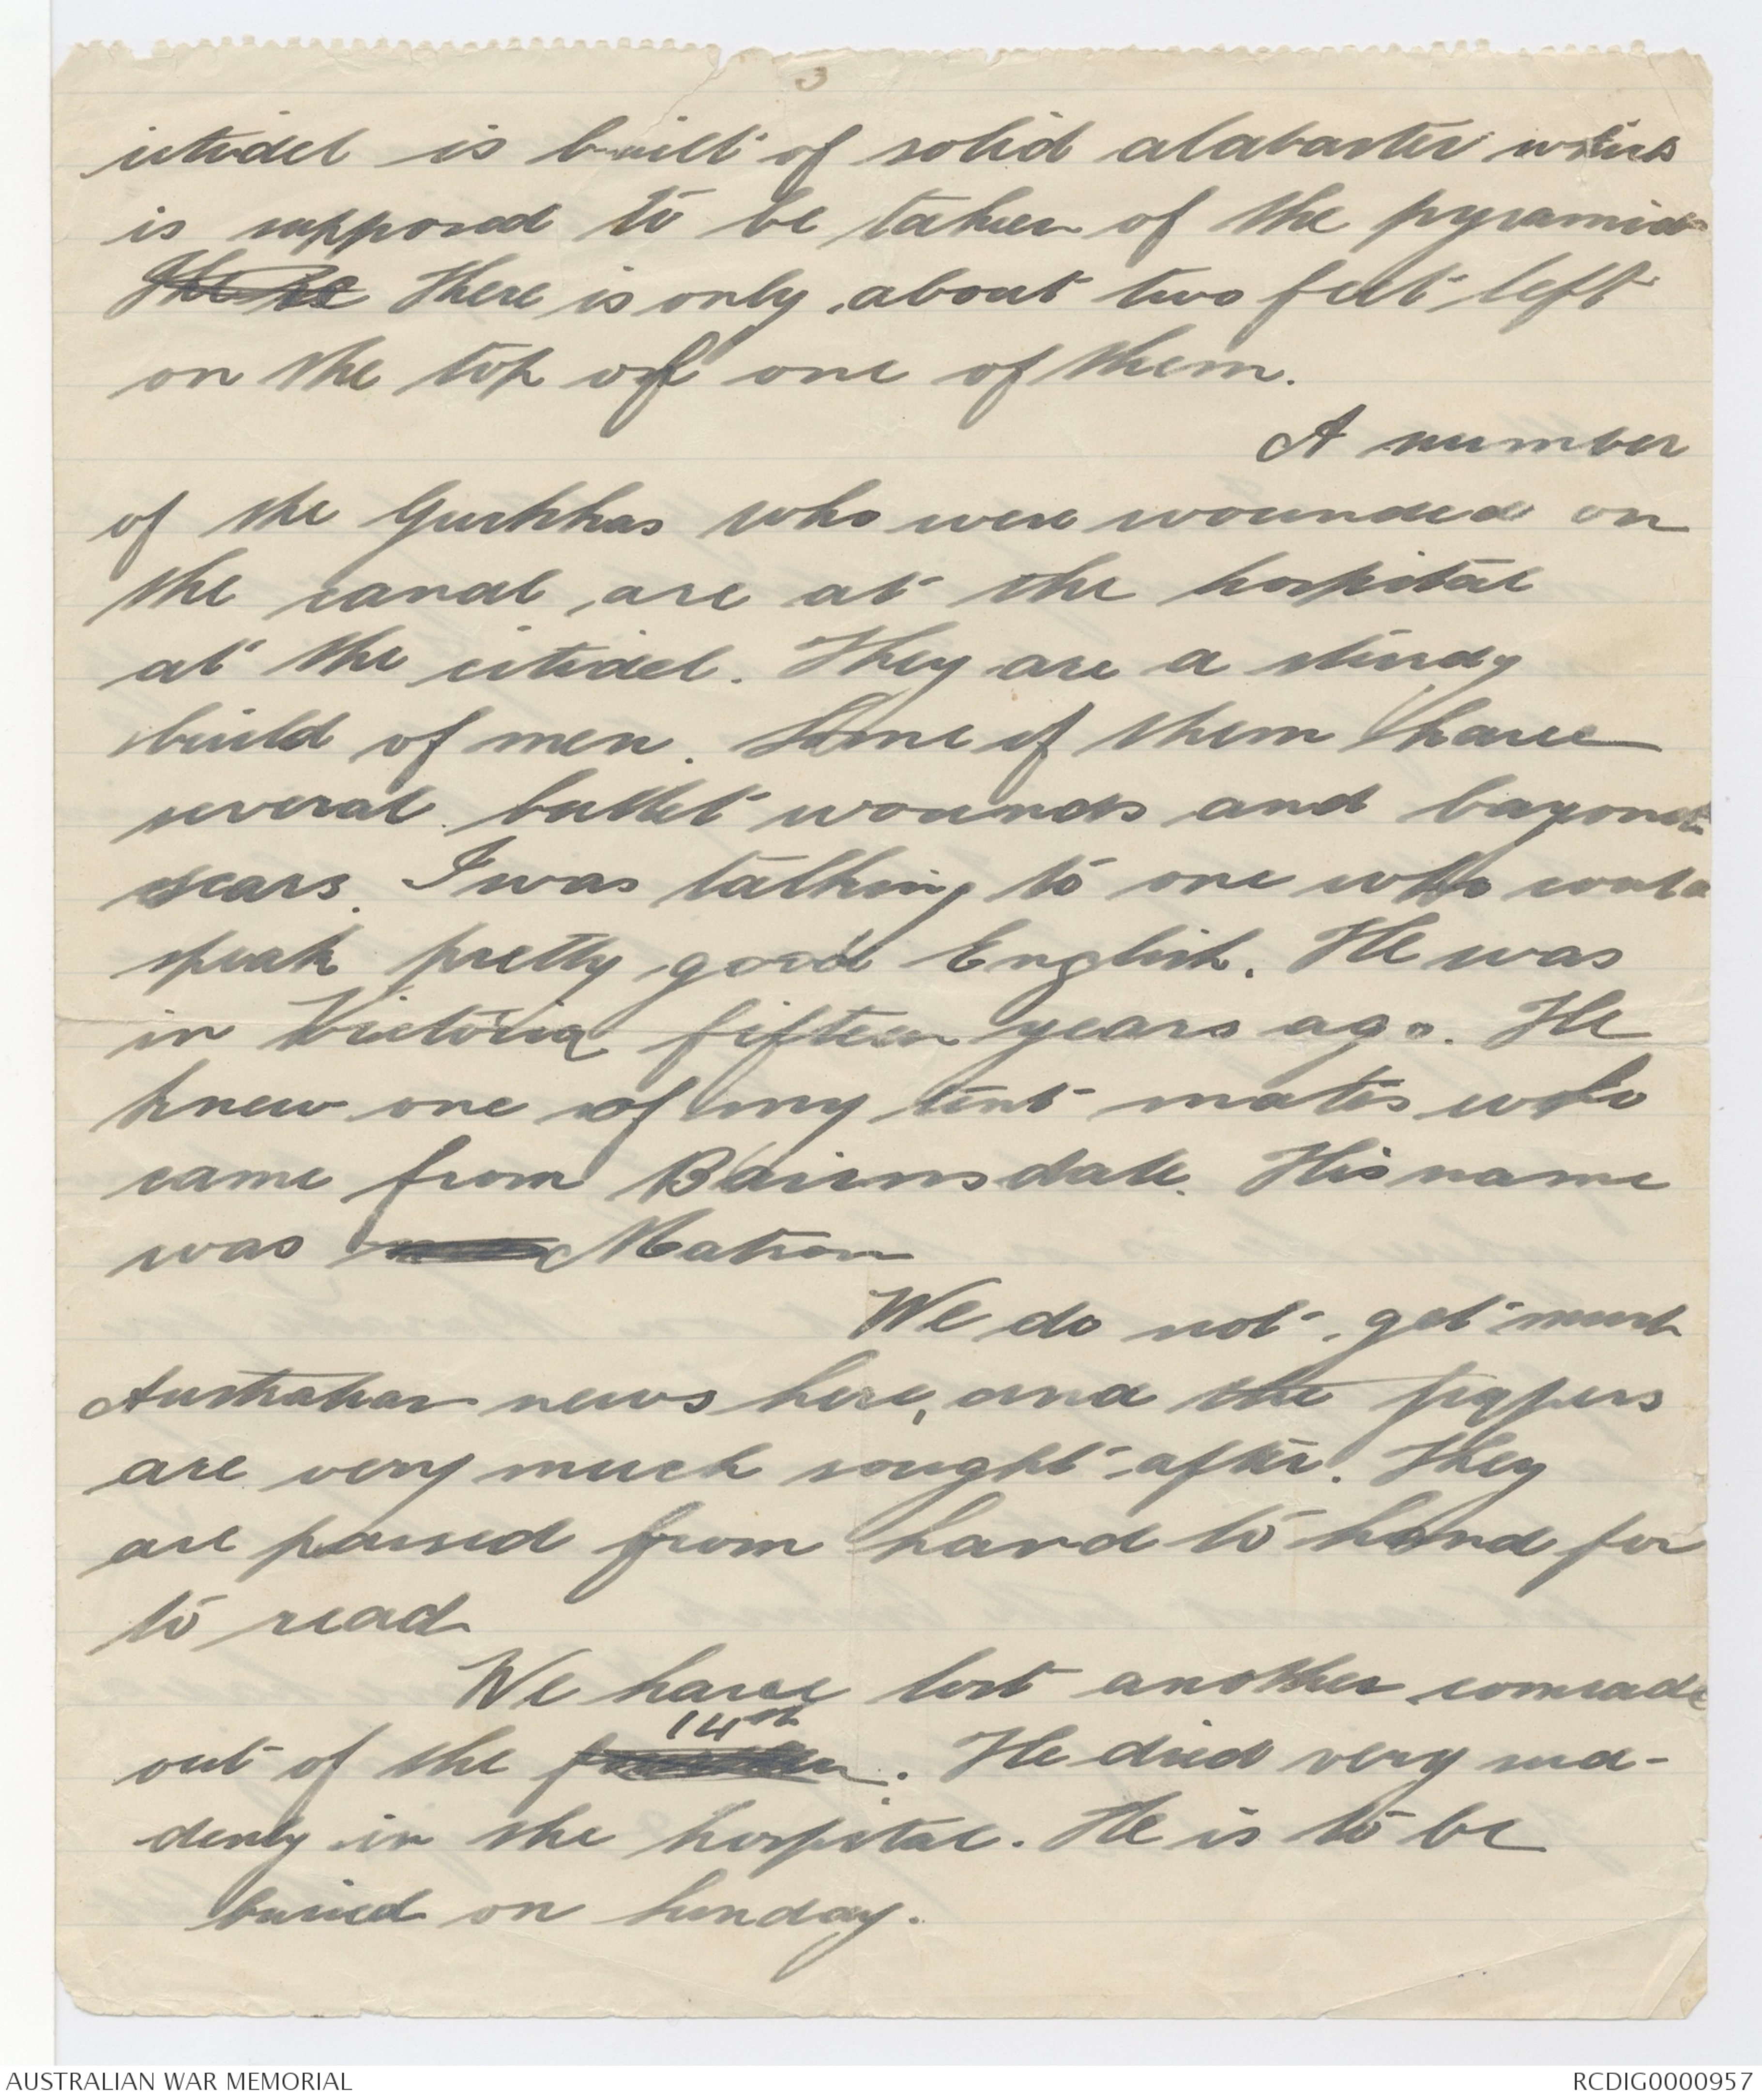 3
citidel is built of solid alabaster which
is supposed to be taken of the pyramids
There is only about two feet left
on the top of one of them.
A number
of the Gurkhas who were wounded on
the canal are at the hospital
at the citidel. They are a sturdy
build of men. Some of them have
several bullet wounds and bayonet
scars. I was talking to one who could
speak pretty good English. He was
in Victoria fifteen years ago. He
knew one of my tent mates who
came from Bairnsdale. His name
was Matron
We do not get much
Australian news here, and the papers
are very much sought after. They
are passed from hand to hand for
to read
We have lost another comrade
14th
out of the. He died very sud-
denly in the hospital. He is to be
buried on Sunday.
AUSTRALIAN WAR MEMORIAL
RCDIG0000957